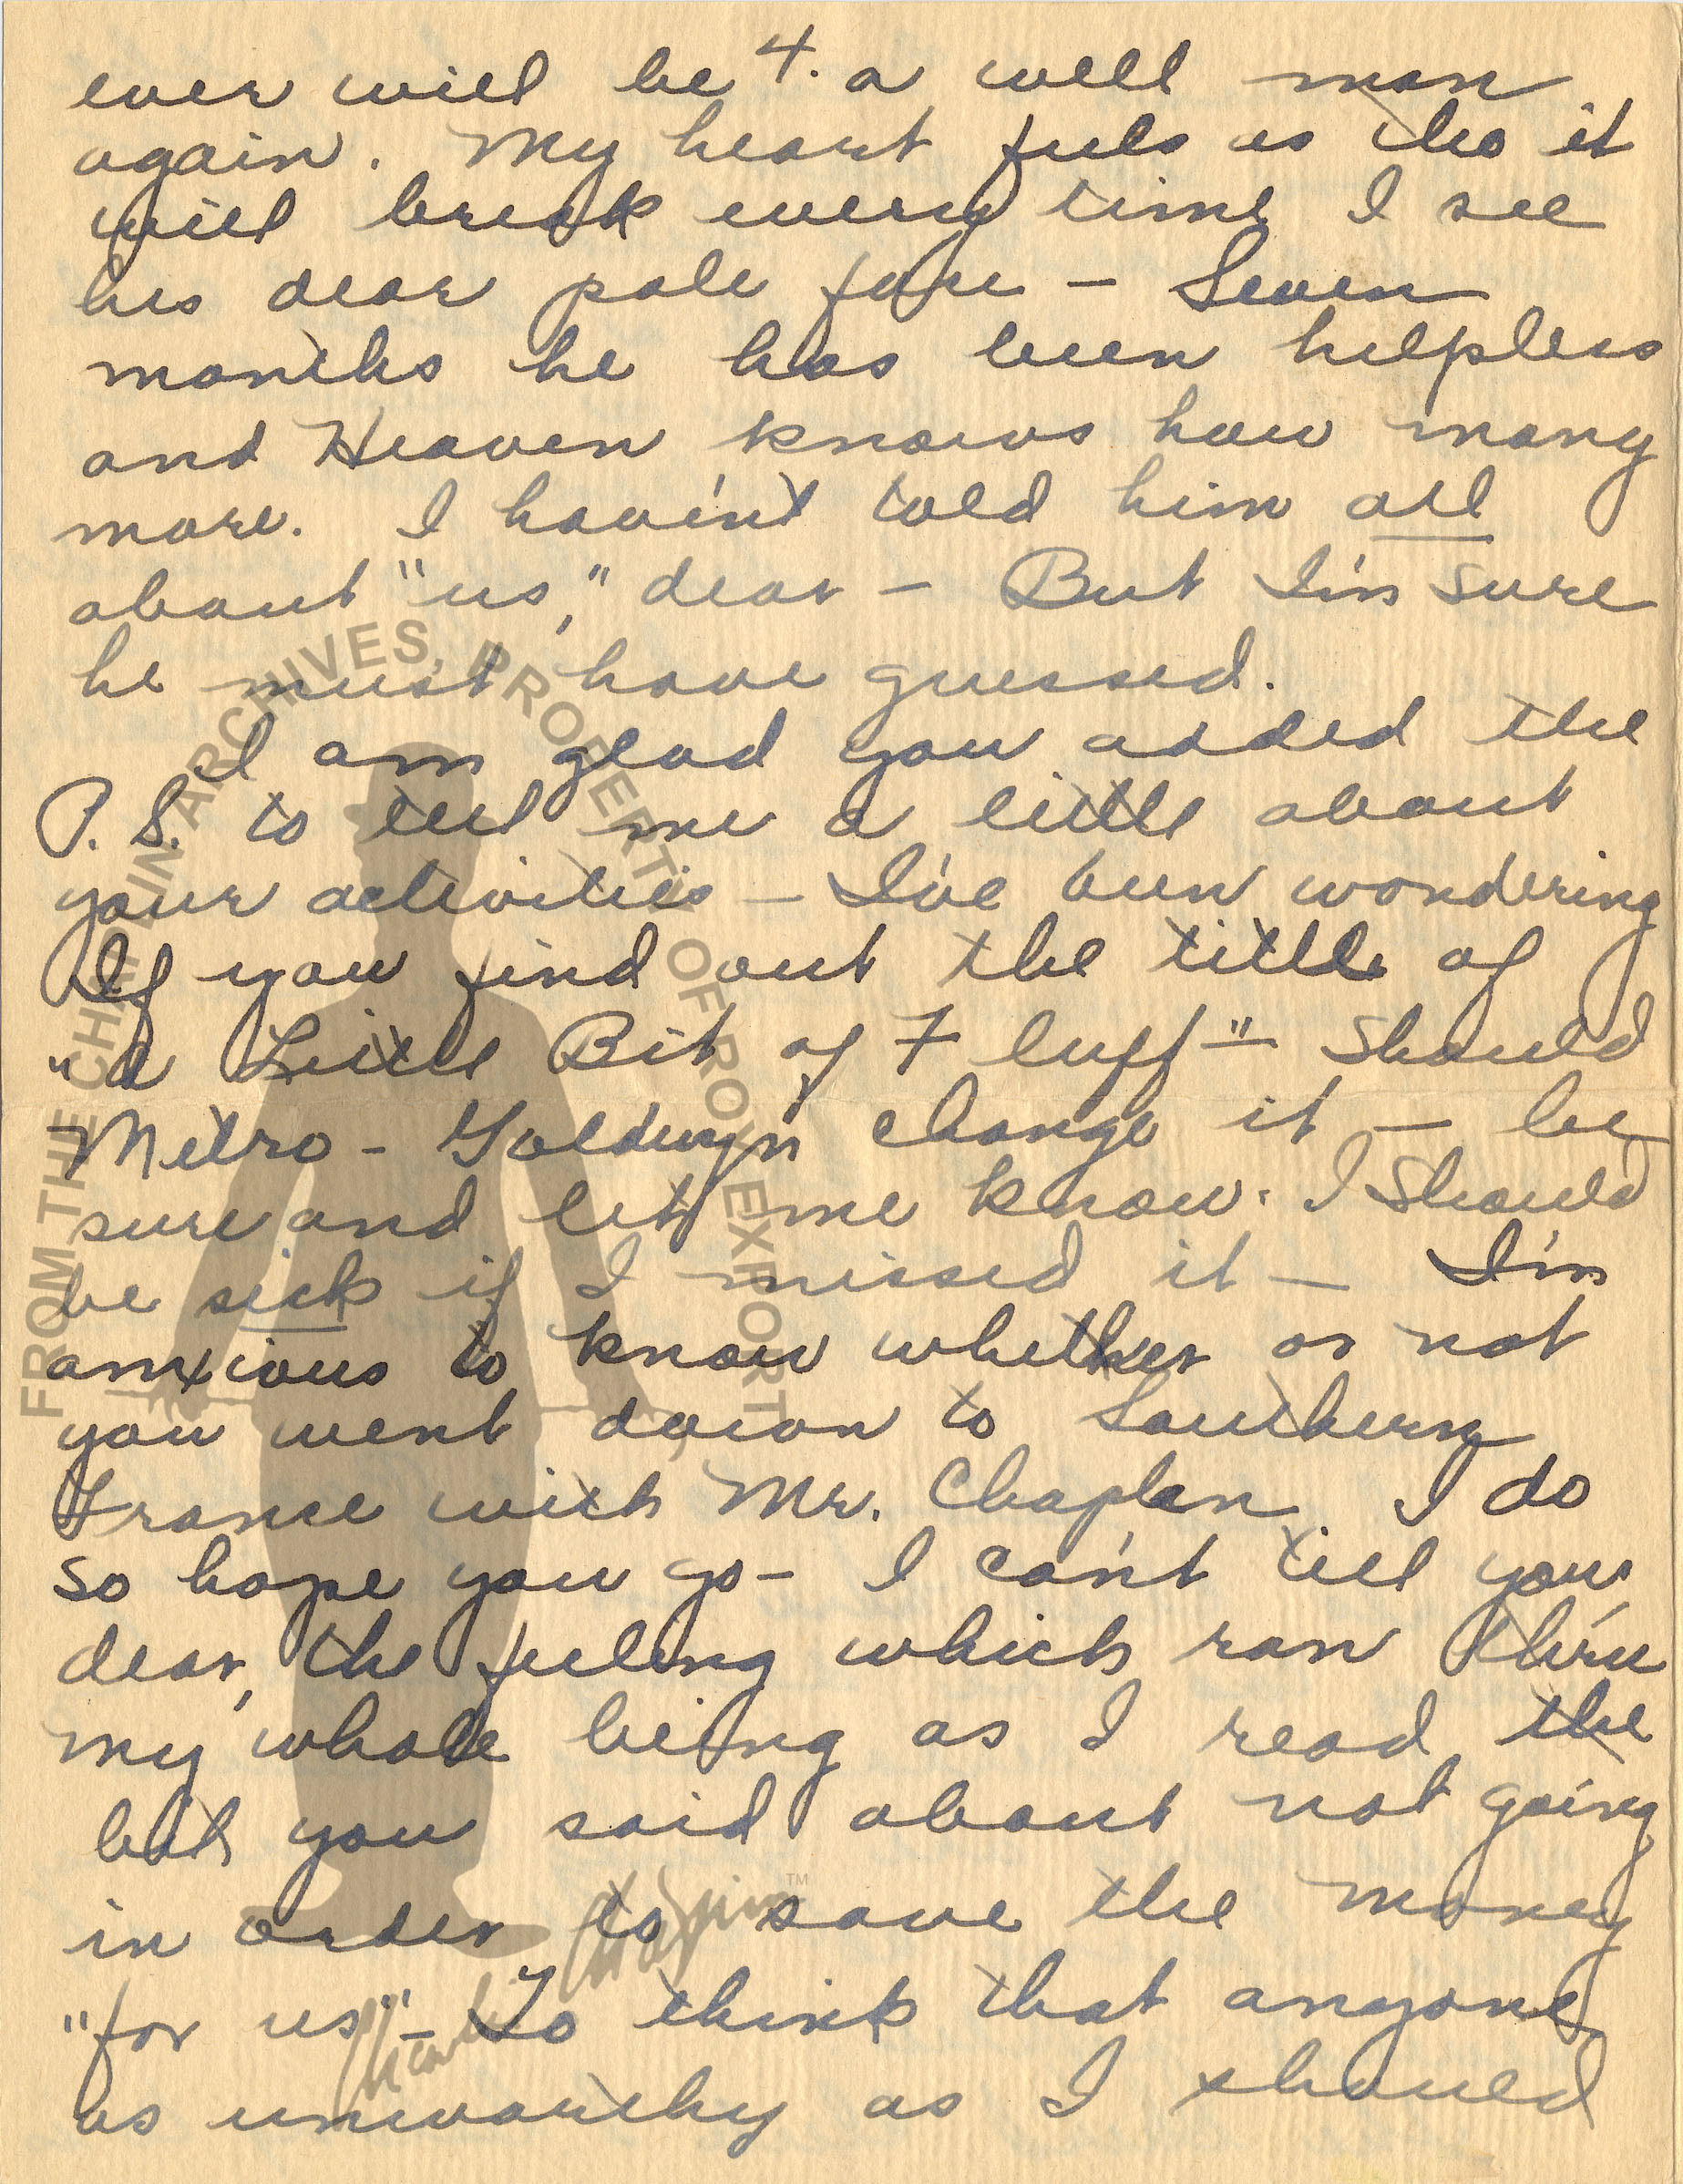 4.
ever will be a well man
again. My heart feels as tho it
will break every time I see
his dear pale face – Seven
months he has been helpless
and Heaven knows how many
more. I haven't told him all
about "us," dear – But I'm sure
he must have guessed.
I am glad you added the
P.S. to tell me a little about
your activities – I've been wondering
If you find out the title of
"a Little Bit of Fluff" – should
Metro-Goldwyn change it – be
sure and let me know. I should
be sick if I missed it – I'm
anxious to know whether or not
you went down to Southern
France with Mr. Chaplan. I do
so hope you go – I can't tell you,
dear, the feeling which ran thru
my whole being as I read the
bit you said about not going
in order to save the money
"for us" – To think that anyone
as unworthy as I should
FROM THE CHAPLIN ARCHIVES, PROPERTY OF ROY EXPORT
Charlie Chaplin™